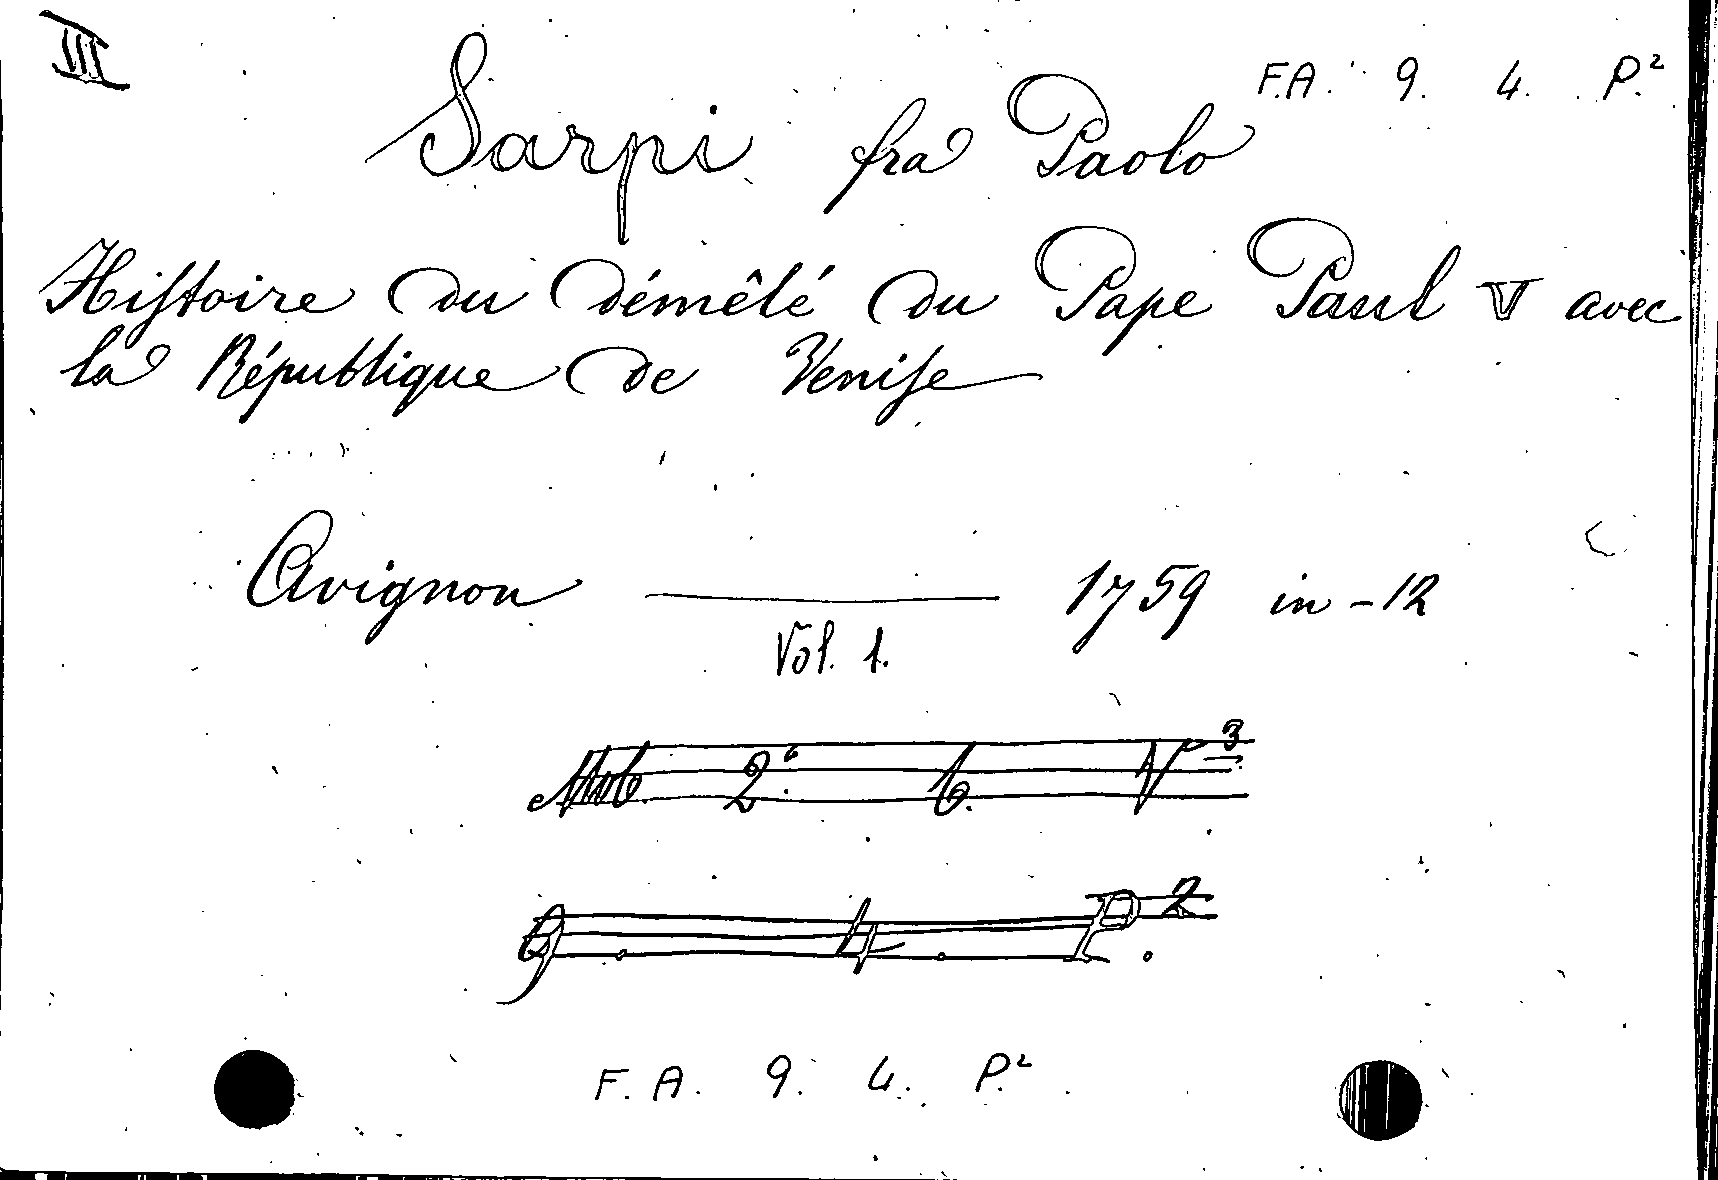 III
F.A. 9. 4. P.²
Sarpi fra Paolo
Histoire du démêlé du Pape Paul V avec
la République de Venise
Avignon ——— 1759 in-12
Vol. 1.
2. 6.
9. 4. P.²
F. A. 9. 4. P.²